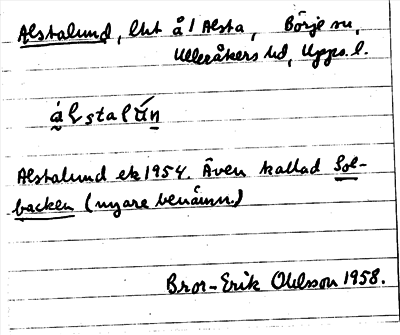 Alstalund, lht å 1 Alsta, Börje sn,
Ulleråkers hd, Upps. l.
álstalún
Alstalund ek 1954. Även kallad Sol-
backen (nyare benämn.)
Bror-Erik Ohlsson 1958.